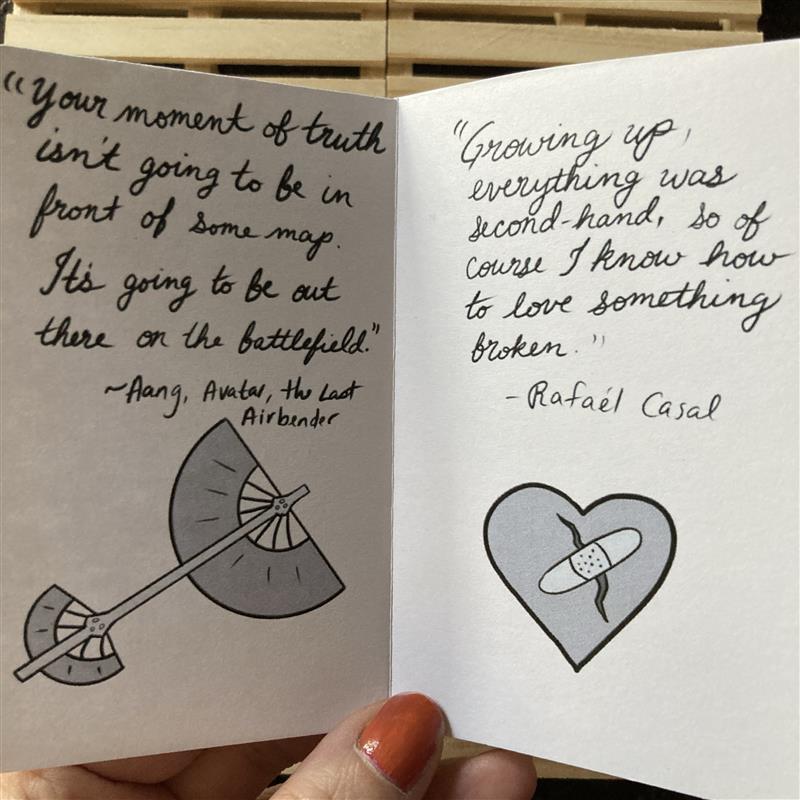 "Your moment of truth
isn't going to be in
front of some map.
It's going to be out
there on the battlefield."
~Aang, Avatar, the Last
Airbender
"Growing up,
everything was
second-hand, so of
course I know how
to love something
broken."
- Rafaél Casal